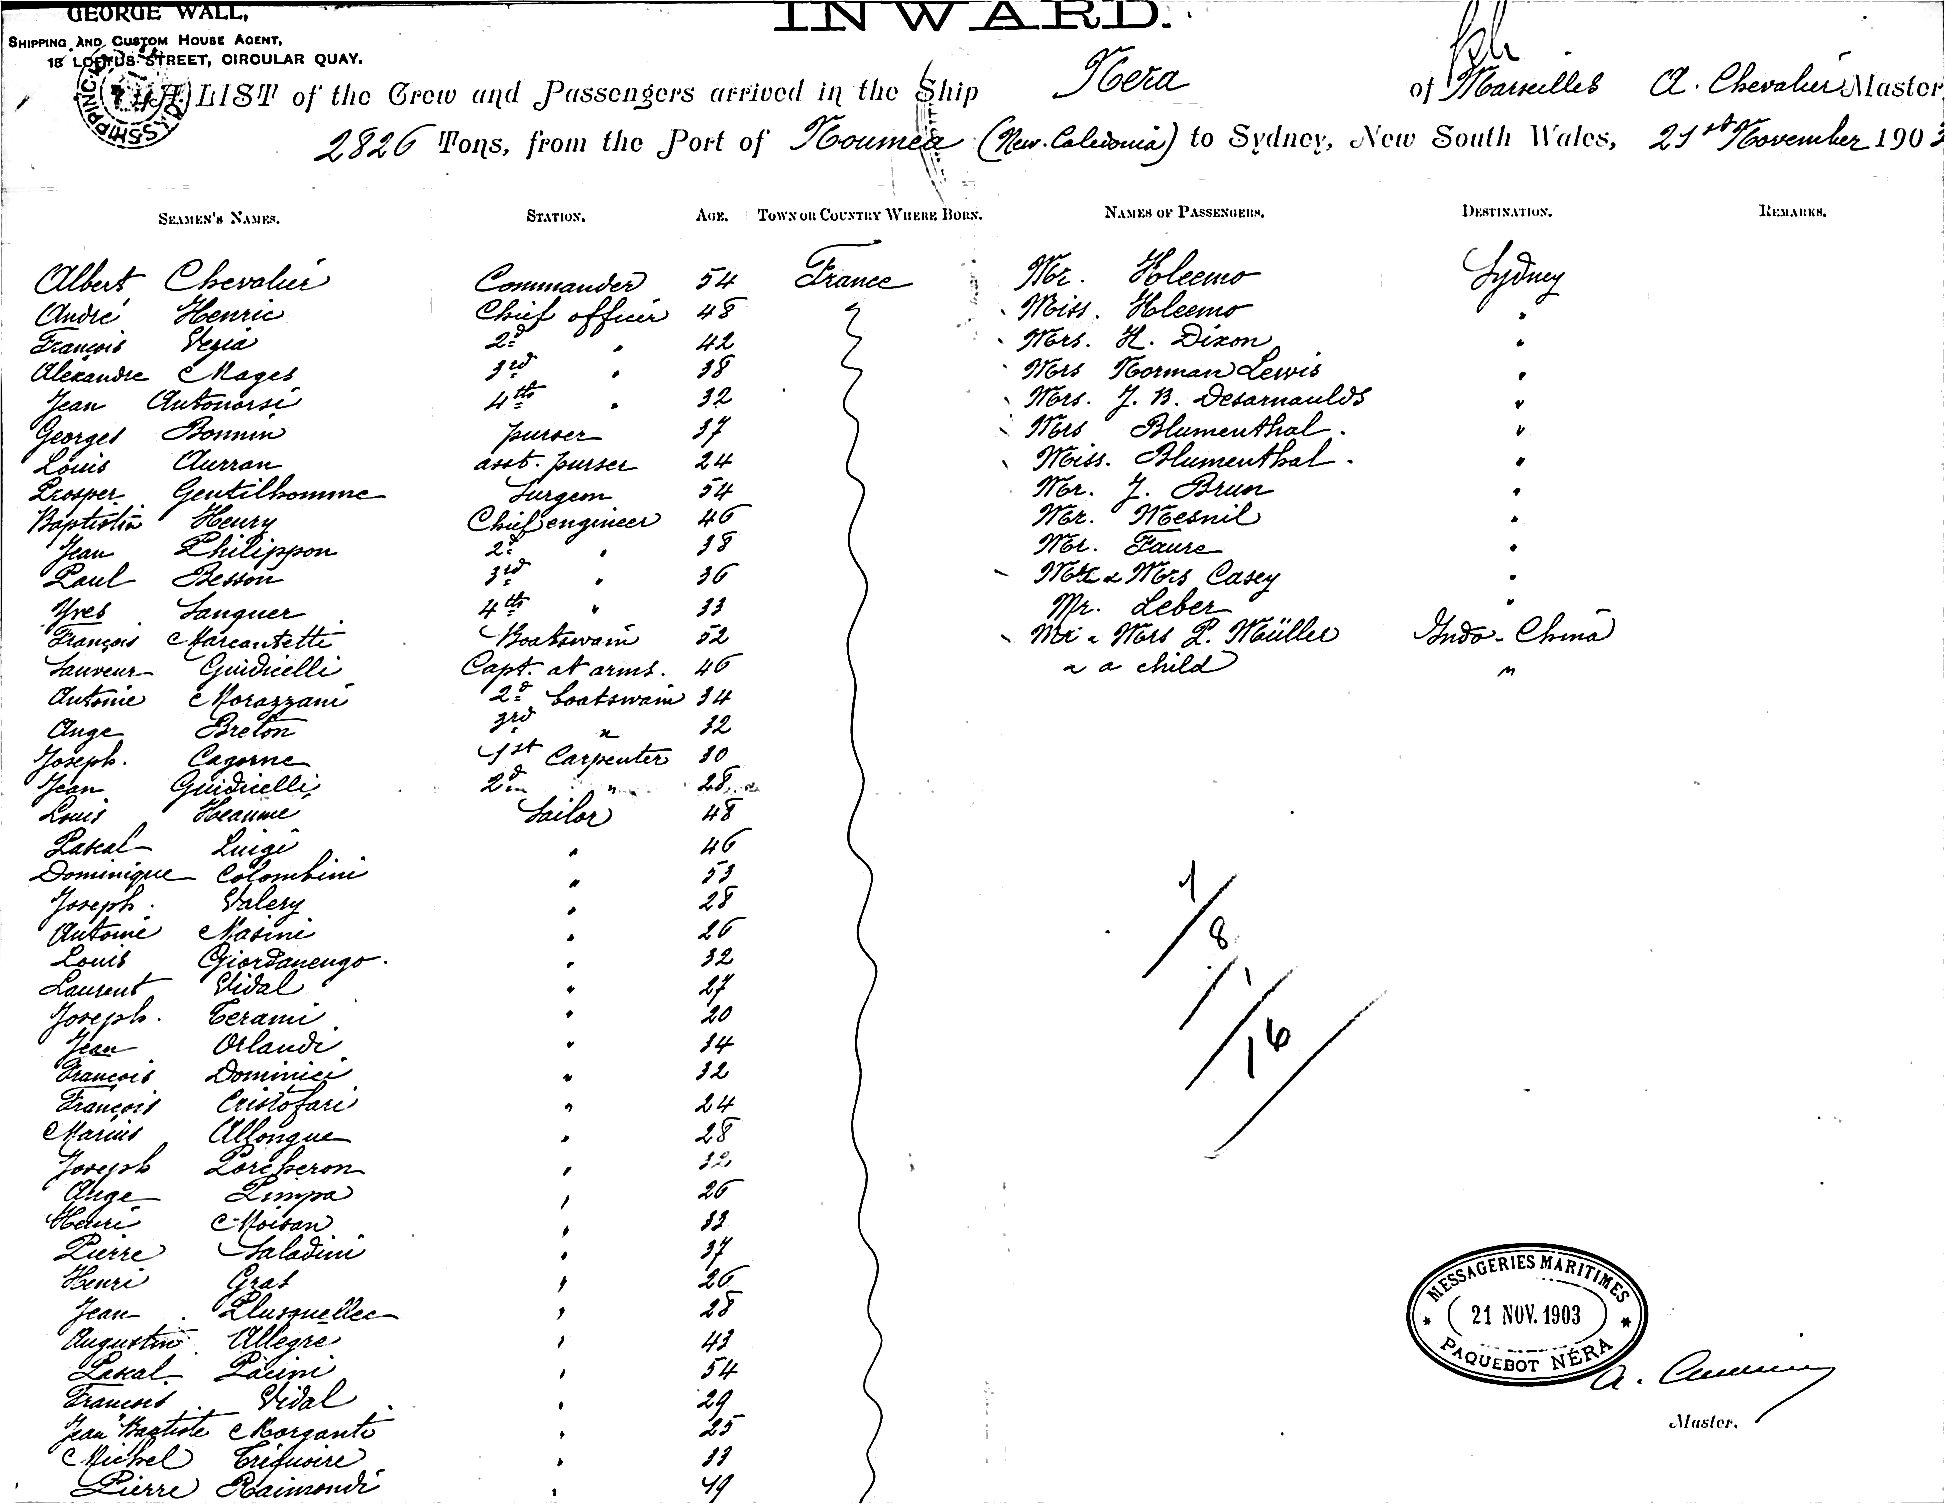 GEORGE WALL,
SHIPPING AND CUSTOM HOUSE AGENT,
18 LOFTUS STREET, CIRCULAR QUAY.
INWARD.
(A) LIST of the Crew and Passengers arrived in the Ship Nera of Marseilles A. Chevalier Master
2826 Tons, from the Port of Noumea (New Caledonia) to Sydney, New South Wales, 21st November 1903
SEAMEN'S NAMES. STATION. AGE. TOWN OR COUNTRY WHERE BORN. NAMES OF PASSENGERS. DESTINATION. REMARKS.
Albert Chevalier Commander 54 France Mr. Kleemo Sydney
André Henric Chief officer 48 Miss. Kleemo "
François Vezia 2d " 42 Mrs. H. Dixon "
Alexandre Mages 3rd " 38 Mrs Norman Lewis "
Jean Antonorsi 4th " 32 Mrs. J. B. Desarnaulds "
Georges Bonnin purser 37 Mrs Blumenthal. "
Louis Aurran asst. purser 24 Miss. Blumenthal. "
Prosper Gentilhomme Surgeon 54 Mr. J. Brun "
Baptistin Henry Chief engineer 46 Mr. Mesnil "
Jean Philippon 2d " 38 Mr. Faure "
Paul Besson 3rd " 36 Mr & Mrs Casey "
Yves Sanquer 4th " 33 Mr. Leber "
François Marcantetti Boatswain 52 Mr & Mrs P. Müller Indo-China
Sauveur Guidicelli Capt. at arms. 46 & a child "
Antoine Morazzani 2d boatswain 34
Ange Breton 3rd " 32
Joseph. Cagorne 1st Carpenter 30
Jean Guidicelli 2d " 28
Louis Heaumé Sailor 48
Pascal Luigi " 46
Dominique Colombini " 53
Joseph. Valery " 28
Antoine Masini " 26
Louis Giordanengo. " 32
Laurent Vidal " 27
Joseph. Terami " 20
Jean Orlandi " 34
François Dominici " 32
François Cristofari " 24
Marius Allongue " 28
Joseph Porcheron " 32
Ange Pimpa " 26
Henri Moisan " 33
Pierre Saladini " 37
Henri Gras " 26
Jean Plusquellec " 28
Augustin Allegre " 43
Pascal Pacini " 54
François Vidal " 29
Jean Baptiste Morganti " 25
Michel Tréguoire " 33
Pierre Raimondi " 49
1/8/1/16
MESSAGERIES MARITIMES
21 NOV. 1903
PAQUEBOT NÉRA
Master.